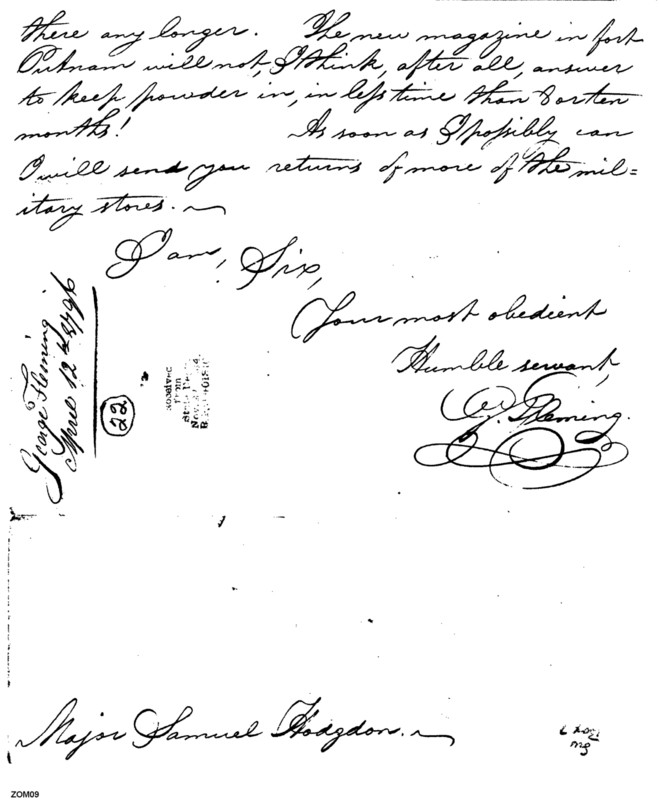 there any longer. The new magazine in fort
Putnam will not, I think, after all, answer
to keep powder in, in less time than 8 or ten
months! As soon as I possibly can
I will send you returns of more of the mil=
itary stores.
I am, Sir,
Your most obedient
Humble servant,
G. Fleming.
George Fleming
April 12th 1796
22
Received
from
State
Major Samuel Hodgdon.
ZOM09